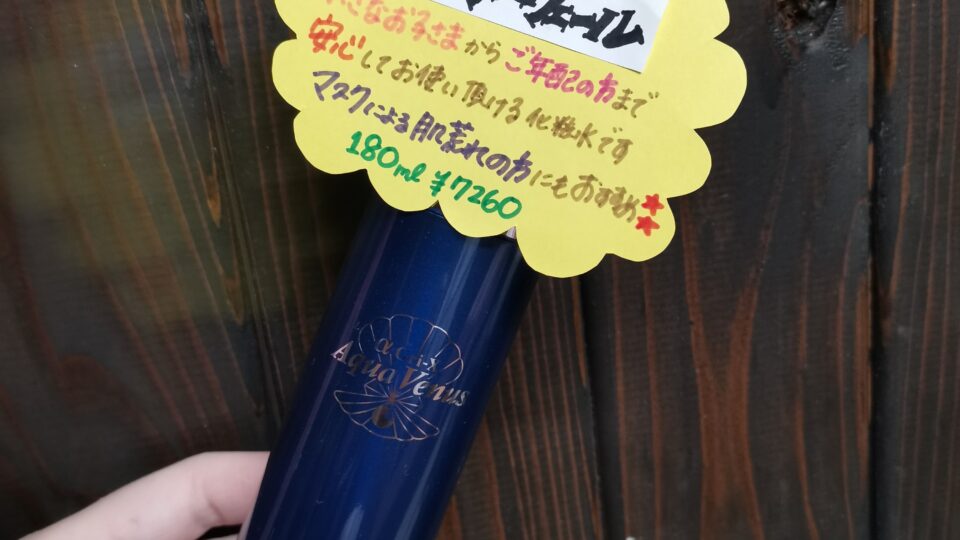 なお子さまからご年配の方まで
安心してお使い頂ける化粧水です
マスクによる肌荒れの方にもおすすめ★★
180ml ¥7260
Aqua Venus